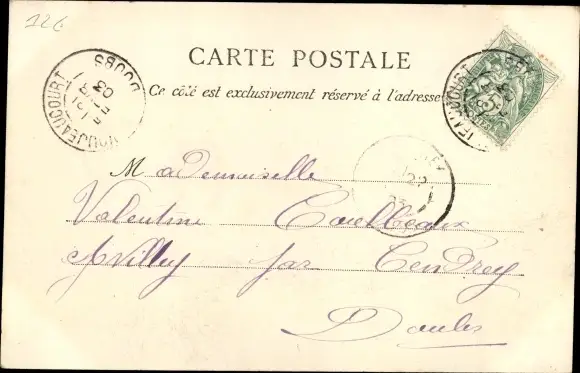 126
CARTE POSTALE
Ce côté est exclusivement réservé à l'adresse
VOUJEAUCOURT
DOUBS
03
Mademoiselle
Valentine
Avilley par Cendrey
Doubs